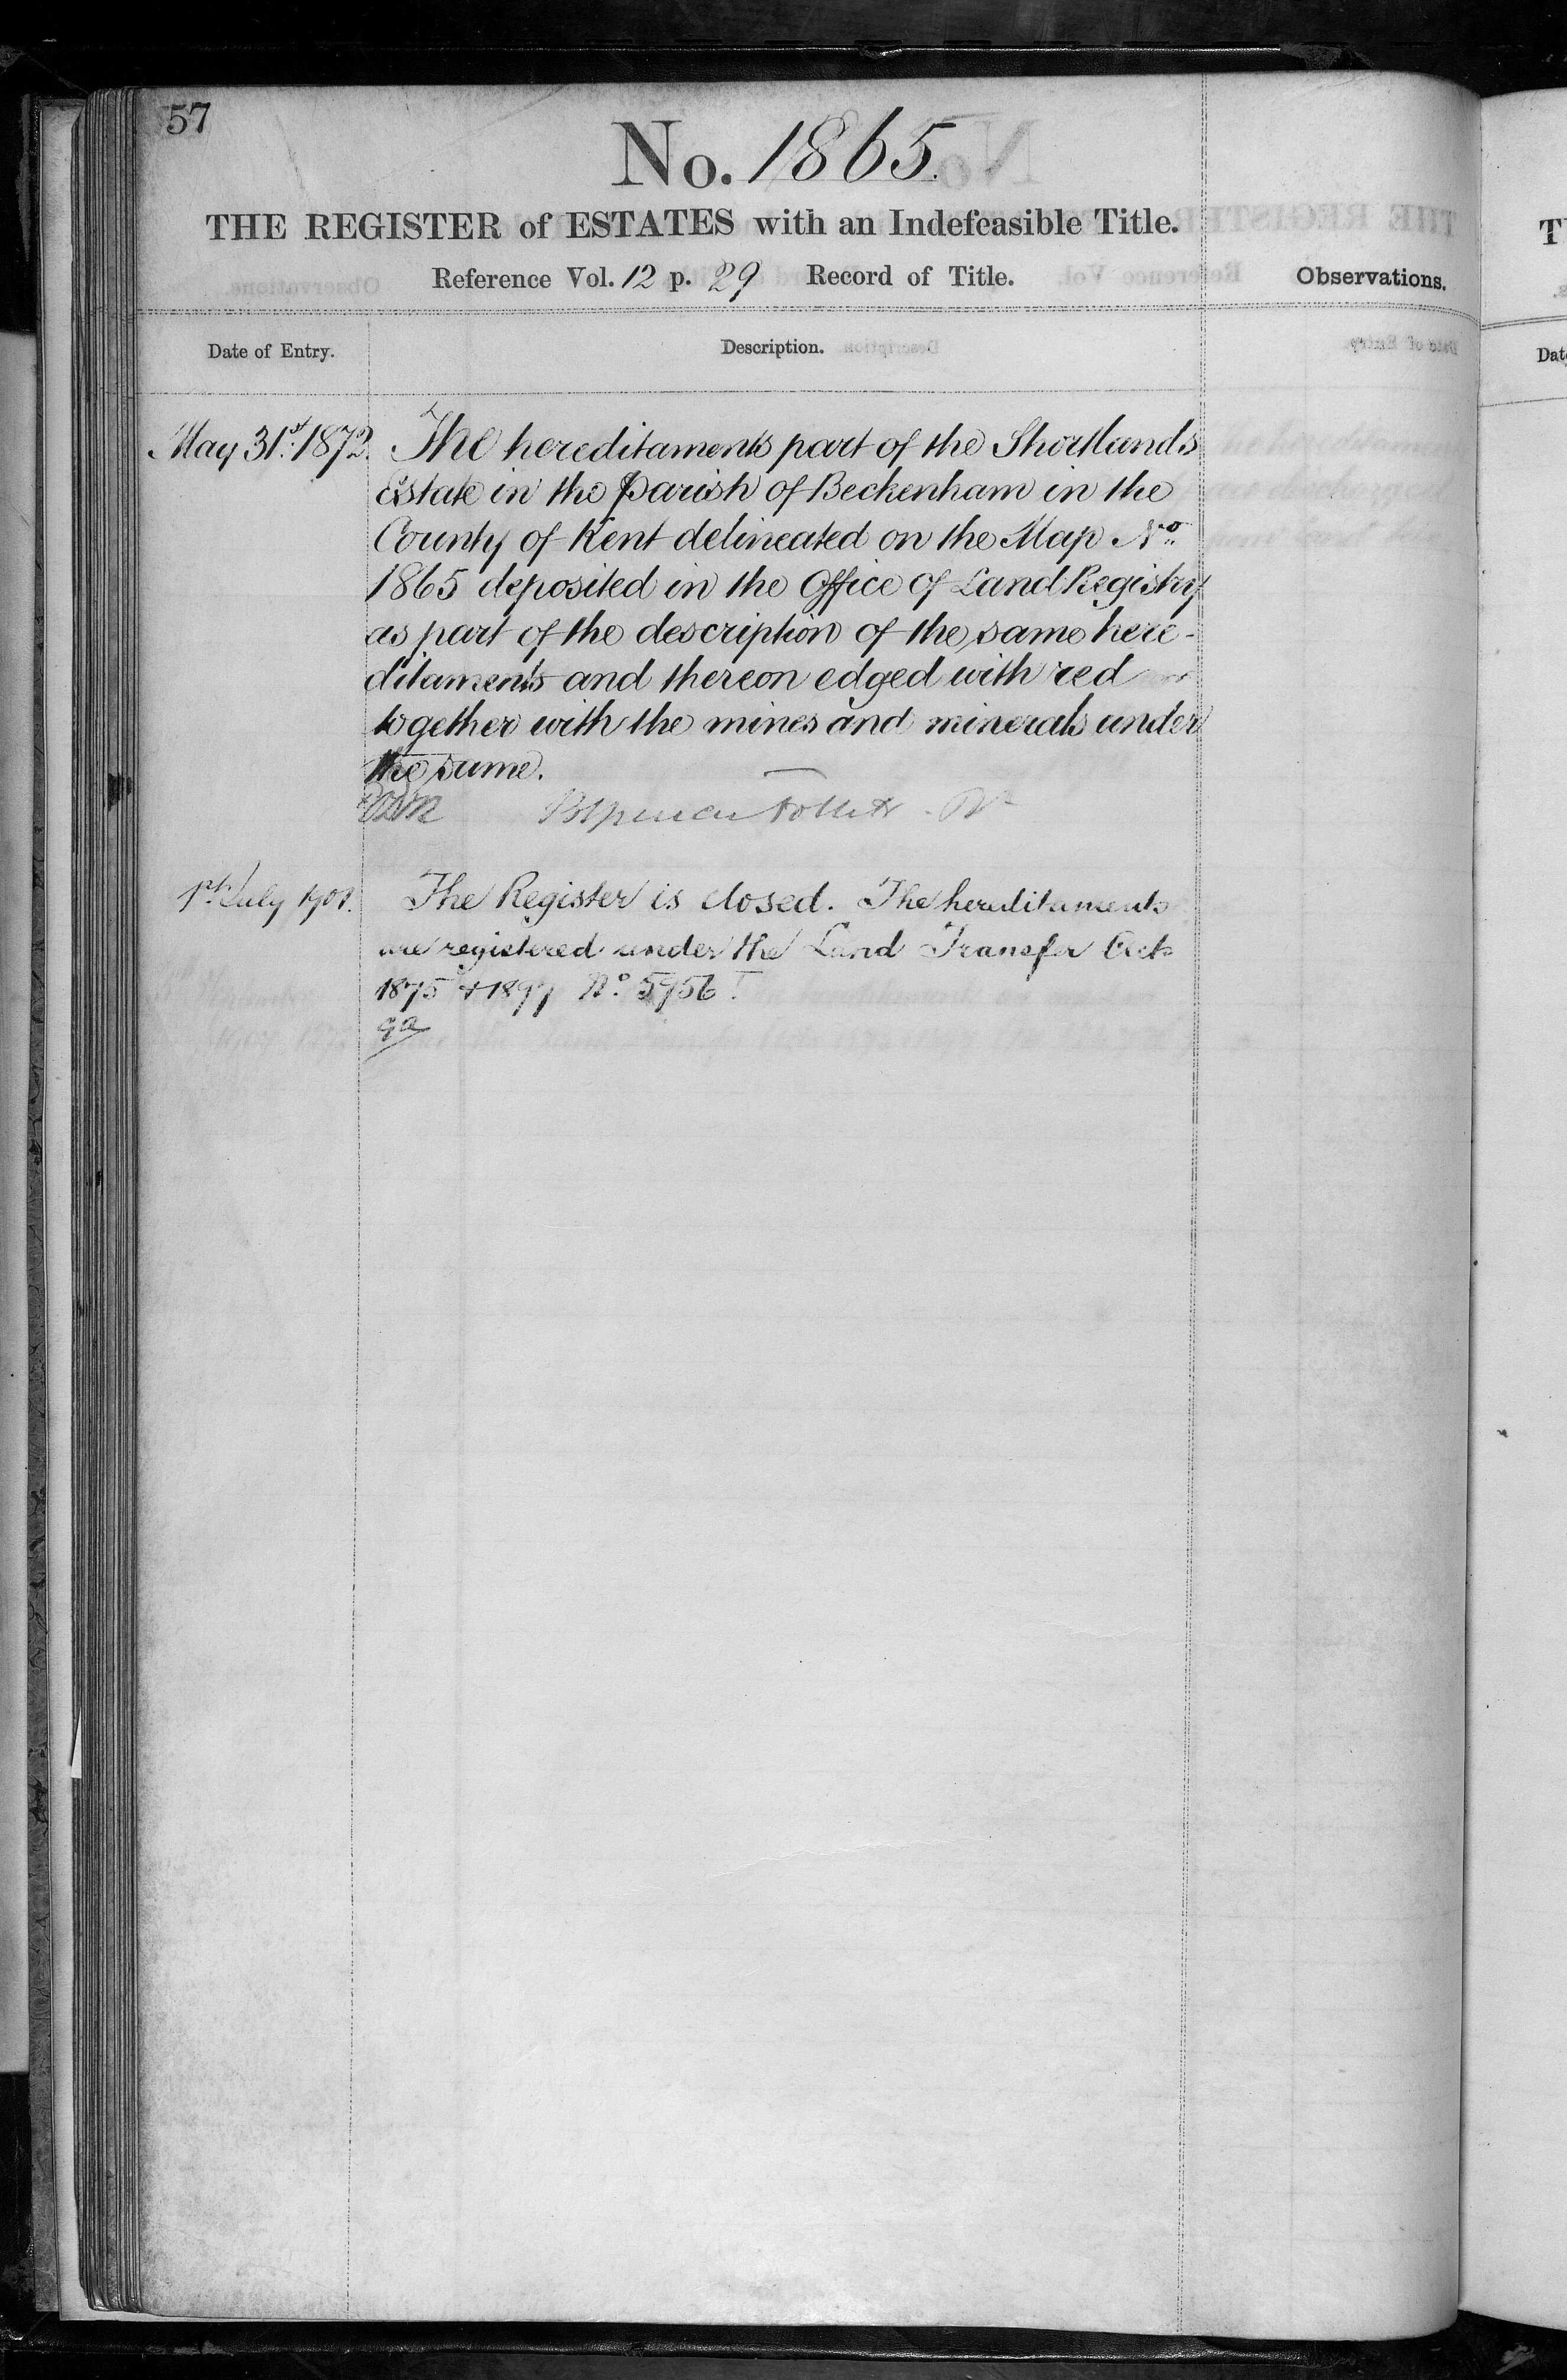 57
No. 1865.
THE REGISTER of ESTATES with an Indefeasible Title.
Reference Vol. 12 p. 29 Record of Title.
Observations.
Date of Entry.
Description.
May 31st. 1872.
The hereditaments part of the Shortlands
Estate in the Parish of Beckenham in the
County of Kent delineated on the Map No.
1865 deposited in the Office of Land Registry
as part of the description of the same here-
ditaments and thereon edged with red
together with the mines and minerals under
the same.
1st. July 1901.
The Register is closed. The hereditaments
are registered under the Land Transfer Acts
1875 & 1897 No. 5956